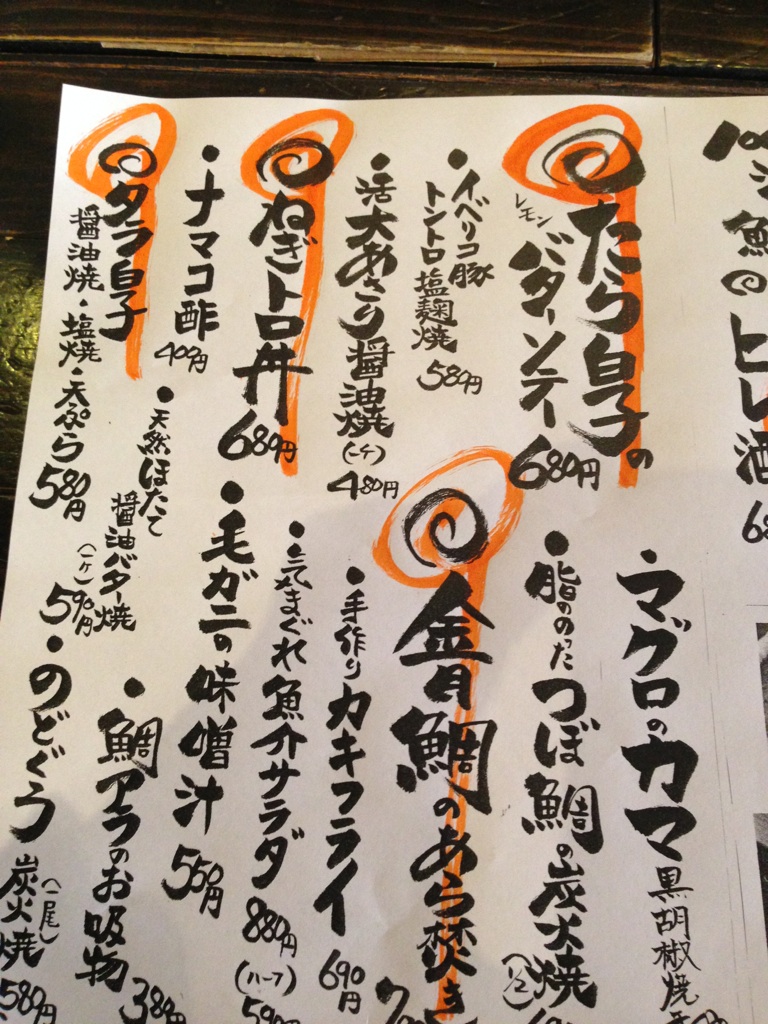 鯛のヒレ酒
たら白子の
レモン
バターソテー 680円
・イベリコ豚
トントロ塩麹焼 580円
・活大あさり醤油焼(一ケ) 480円
ねぎトロ丼 680円
・ナマコ酢 400円
タラ白子
醤油焼・塩焼・天ぷら 580円
・マグロのカマ
黒胡椒焼
・脂ののった つぼ鯛の炭火焼
(1/2)
金目鯛のあら焚き
・手作りカキフライ 690円
・気まぐれ魚介サラダ 880円
(ハーフ)
・毛ガニの味噌汁 550円
・天然ほたて
醤油バター焼
(一ケ) 590円
・鯛アラのお吸物 380円
・のどぐろ
(一尾)
炭火焼 580円